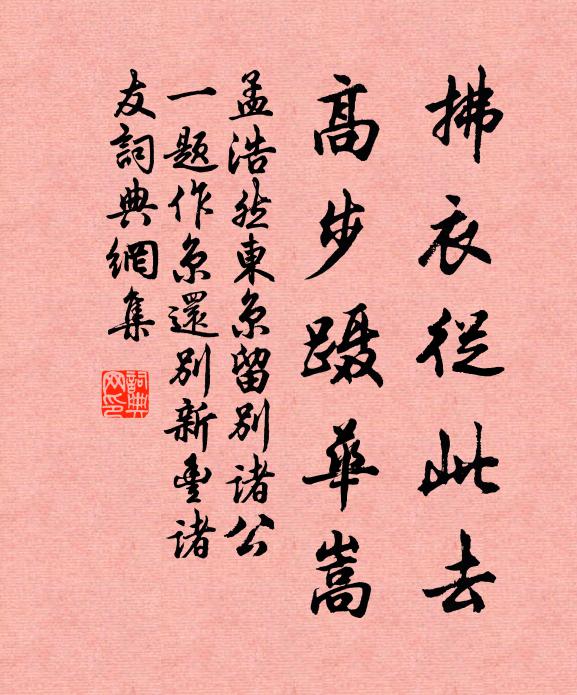 拂衣從此去
高步躡華嵩
孟浩然東京留別諸公
一題作京還別新豐諸
友詞典網集
詞典网印